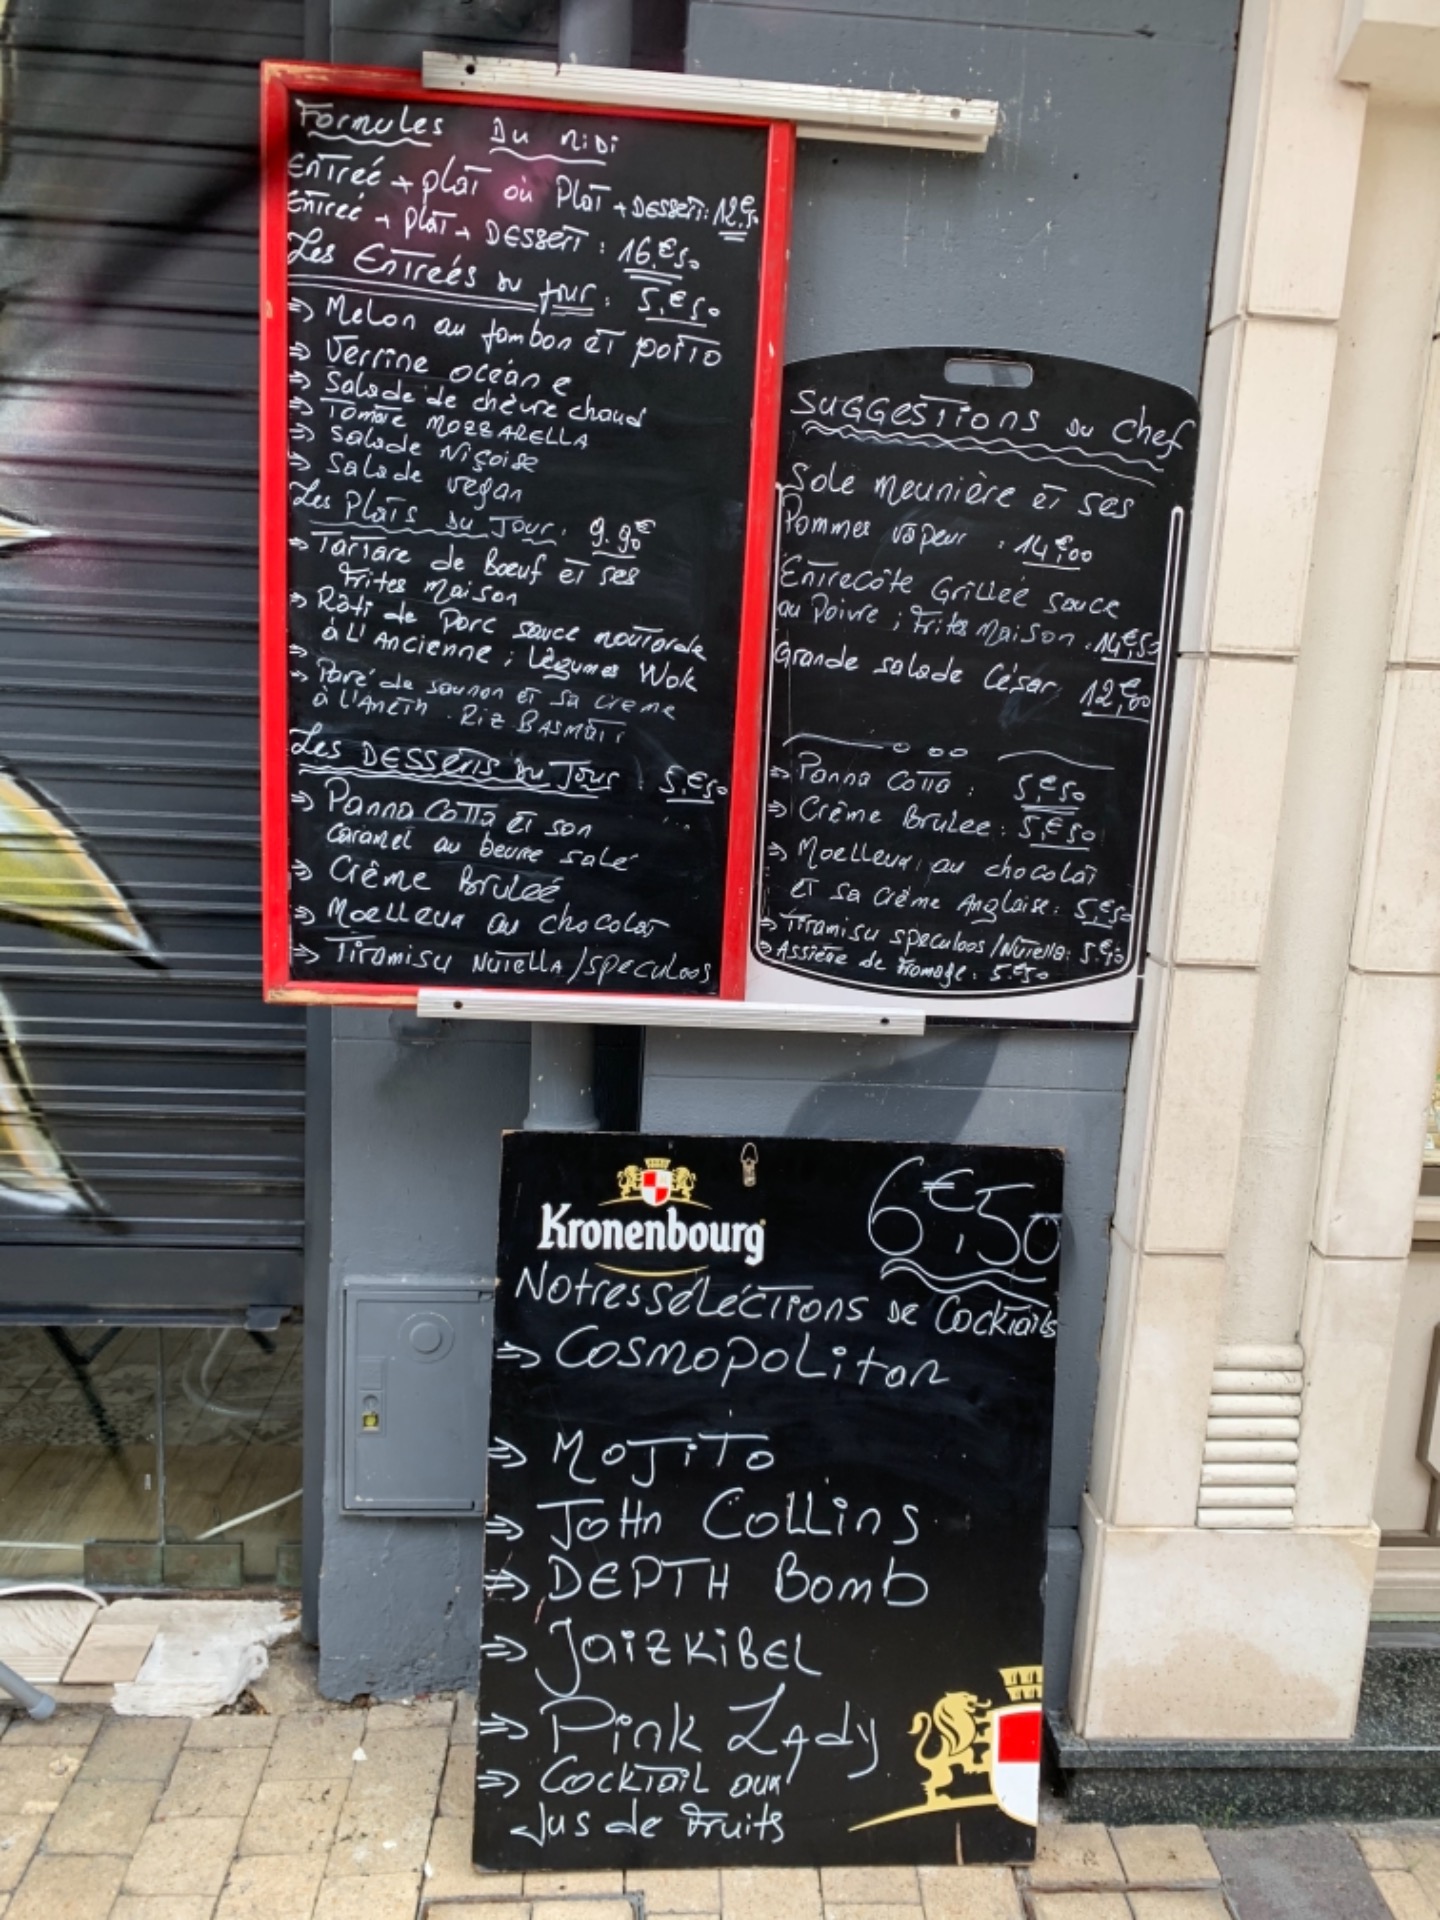 Formules Du Midi
Entrée + plat ou Plat + Dessert: 12,€90
Entrée + plat + Dessert : 16.€50
Les Entreés du jour : 5,€50
⇒ Melon au jambon et porto
⇒ Verrine océane
⇒ Salade de chèvre chaud
⇒ Tomate MOZZARELLA
⇒ Salade Niçoise
⇒ Salade vegan
Les Plats Du Jour. 9.90€
⇒ Tartare de Bœuf et ses
Frites Maison
⇒ Rôti de Porc sauce moutarde
à L'Ancienne ; légumes Wok
⇒ Pavé de saumon et sa creme
à l'Aneth. Riz BASMATI
Les DESSERTS Du Jour : 5,€50
⇒ Panna Cotta et son
caramel au beurre salé
⇒ Crême Bruleé
⇒ Moelleux au chocolat
⇒ Tiramisu NUTELLA / speculoos
SUGGESTIONS Du Chef
Sole meunière et ses
Pommes vapeur : 14,€00
Entrecôte Grilleé sauce
au Poivre ; Frites Maison . 14,€50
Grande salade César. 12,€00
⇒ Panna Cotta : 5,€50
⇒ Crême Brulee : 5,€50
⇒ Moelleux au chocolat
et sa crême Anglaise : 5,€50
⇒ Tiramisu speculoos / Nutella : 5.€50
⇒ Assiete de fromage : 5.€50
Kronenbourg
6€,50
Notres séléctions de Cocktails
⇒ Cosmopolitan
⇒ MOJiTO
⇒ JoHn Collins
⇒ DEPTH Bomb
⇒ JaizkiBEL
⇒ Pink Lady
⇒ Cocktail aux
Jus de Fruits